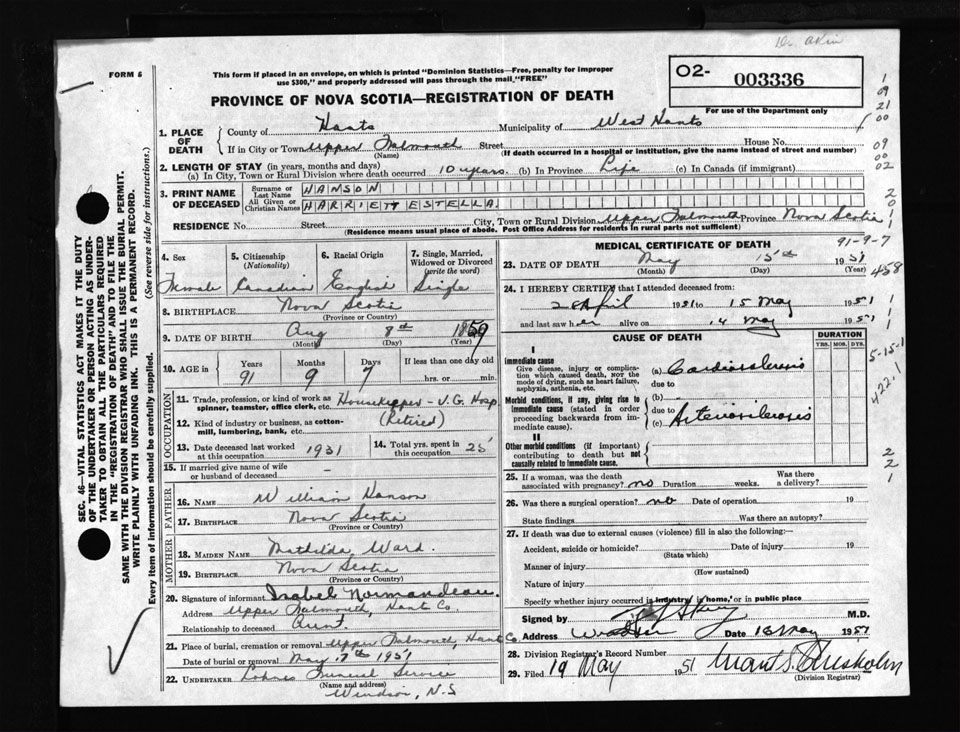 Dr. Akin
FORM 6
This form if placed in an envelope, on which is printed "Dominion Statistics—Free, penalty for improper
use $300," and properly addressed will pass through the mail, "FREE"
O2- 003336
For use of the Department only
PROVINCE OF NOVA SCOTIA—REGISTRATION OF DEATH
1. PLACE OF DEATH
County of Hants Municipality of West Hants
If in City or Town Upper Falmouth Street House No.
(Name) (If death occurred in a hospital or institution, give the name instead of street and number)
2. LENGTH OF STAY (in years, months and days)
(a) In City, Town or Rural Division where death occurred 10 years. (b) In Province Life (c) In Canada (if immigrant)
3. PRINT NAME OF DECEASED
Surname or Last Name HANSON
All Given or Christian Names HARRIETT ESTELLA
RESIDENCE No. Street City, Town or Rural Division Upper Falmouth Province Nova Scotia
(Residence means usual place of abode. Post Office Address for residents in rural parts not sufficient)
4. Sex
Female
5. Citizenship
(Nationality)
Canadian
6. Racial Origin
English
7. Single, Married, Widowed or Divorced
(write the word)
Single
8. BIRTHPLACE Nova Scotia
(Province or Country)
9. DATE OF BIRTH Aug 8th 1859
(Month) (Day) (Year)
10. AGE in Years Months Days If less than one day old
91 9 7 hrs. or min.
OCCUPATION
11. Trade, profession, or kind of work as spinner, teamster, office clerk, etc. Housekeeper - V.G. Hosp
12. Kind of industry or business, as cotton-mill, lumbering, bank, etc. (Retired)
13. Date deceased last worked at this occupation 1931
14. Total yrs. spent in this occupation 25
15. If married give name of wife or husband of deceased –
FATHER
16. NAME William Hanson
17. BIRTHPLACE Nova Scotia
(Province or Country)
MOTHER
18. MAIDEN NAME Mathilda Ward.
19. BIRTHPLACE Nova Scotia
(Province or Country)
20. Signature of informant Isabel Normandeau.
Address Upper Falmouth, Hant Co
Relationship to deceased Aunt.
21. Place of burial, cremation or removal Upper Falmouth, Hant Co
Date of burial or removal May 1951
22. UNDERTAKER Funeral Service
(Name and address)
Windsor, N.S
MEDICAL CERTIFICATE OF DEATH
91-9-7
23. DATE OF DEATH May 15th 1951
(Month) (Day) (Year)
24. I HEREBY CERTIFY that I attended deceased from:
28 April 1951 to 15 May 1951
and last saw her alive on 14 May 1951
CAUSE OF DEATH
DURATION
YRS. MOS. DYS.
I
Immediate cause
Give disease, injury or complication which caused death, NOT the mode of dying, such as heart failure, asphyxia, asthenia, etc.
(a) Cardiosclerosis
due to
Morbid conditions, if any, giving rise to immediate cause (stated in order proceeding backwards from immediate cause).
(b)
due to
(c) Arteriosclerosis
II
Other morbid conditions (if important) contributing to death but not causally related to immediate cause.
25. If a woman, was the death associated with pregnancy? no Duration weeks. Was there a delivery?
26. Was there a surgical operation? no Date of operation 19
State findings Was there an autopsy?
27. If death was due to external causes (violence) fill in also the following:—
Accident, suicide or homicide? Date of injury 19
(State which)
Manner of injury
(How sustained)
Nature of injury
Specify whether injury occurred in industry, in home, or in public place
Signed by M.D.
Address Windsor Date 18 May 1951
28. Division Registrar's Record Number
29. Filed 19 May 1951 Chisholm
(Division Registrar)
SEC. 46—VITAL STATISTICS ACT MAKES IT THE DUTY
OF THE UNDERTAKER OR PERSON ACTING AS UNDER-
TAKER TO OBTAIN ALL THE PARTICULARS REQUIRED
IN THE "REGISTRATION OF DEATH" AND TO FILE THE
SAME WITH THE DIVISION REGISTRAR WHO SHALL ISSUE THE BURIAL PERMIT.
WRITE PLAINLY WITH UNFADING INK. THIS IS A PERMANENT RECORD.
Every item of information should be carefully supplied. (See reverse side for instructions.)
1
09
21
00
09
00
02
2
0
1
1
458
1
1
5-15-1
422-1
2
2
1